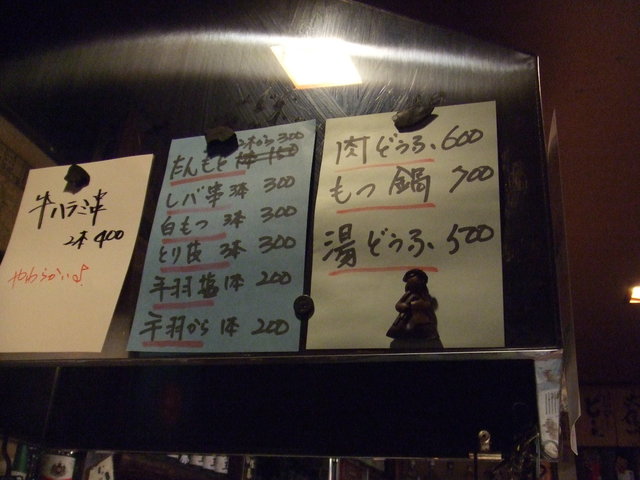 牛ハラミ串
2本 400
やわらかい♪
たんもと 2本から 300
レバ串 3本 300
白もつ 3本 300
とり皮 3本 300
手羽塩 1本 200
手羽から 1本 200
肉どうふ 600
もつ鍋 700
湯どうふ 500